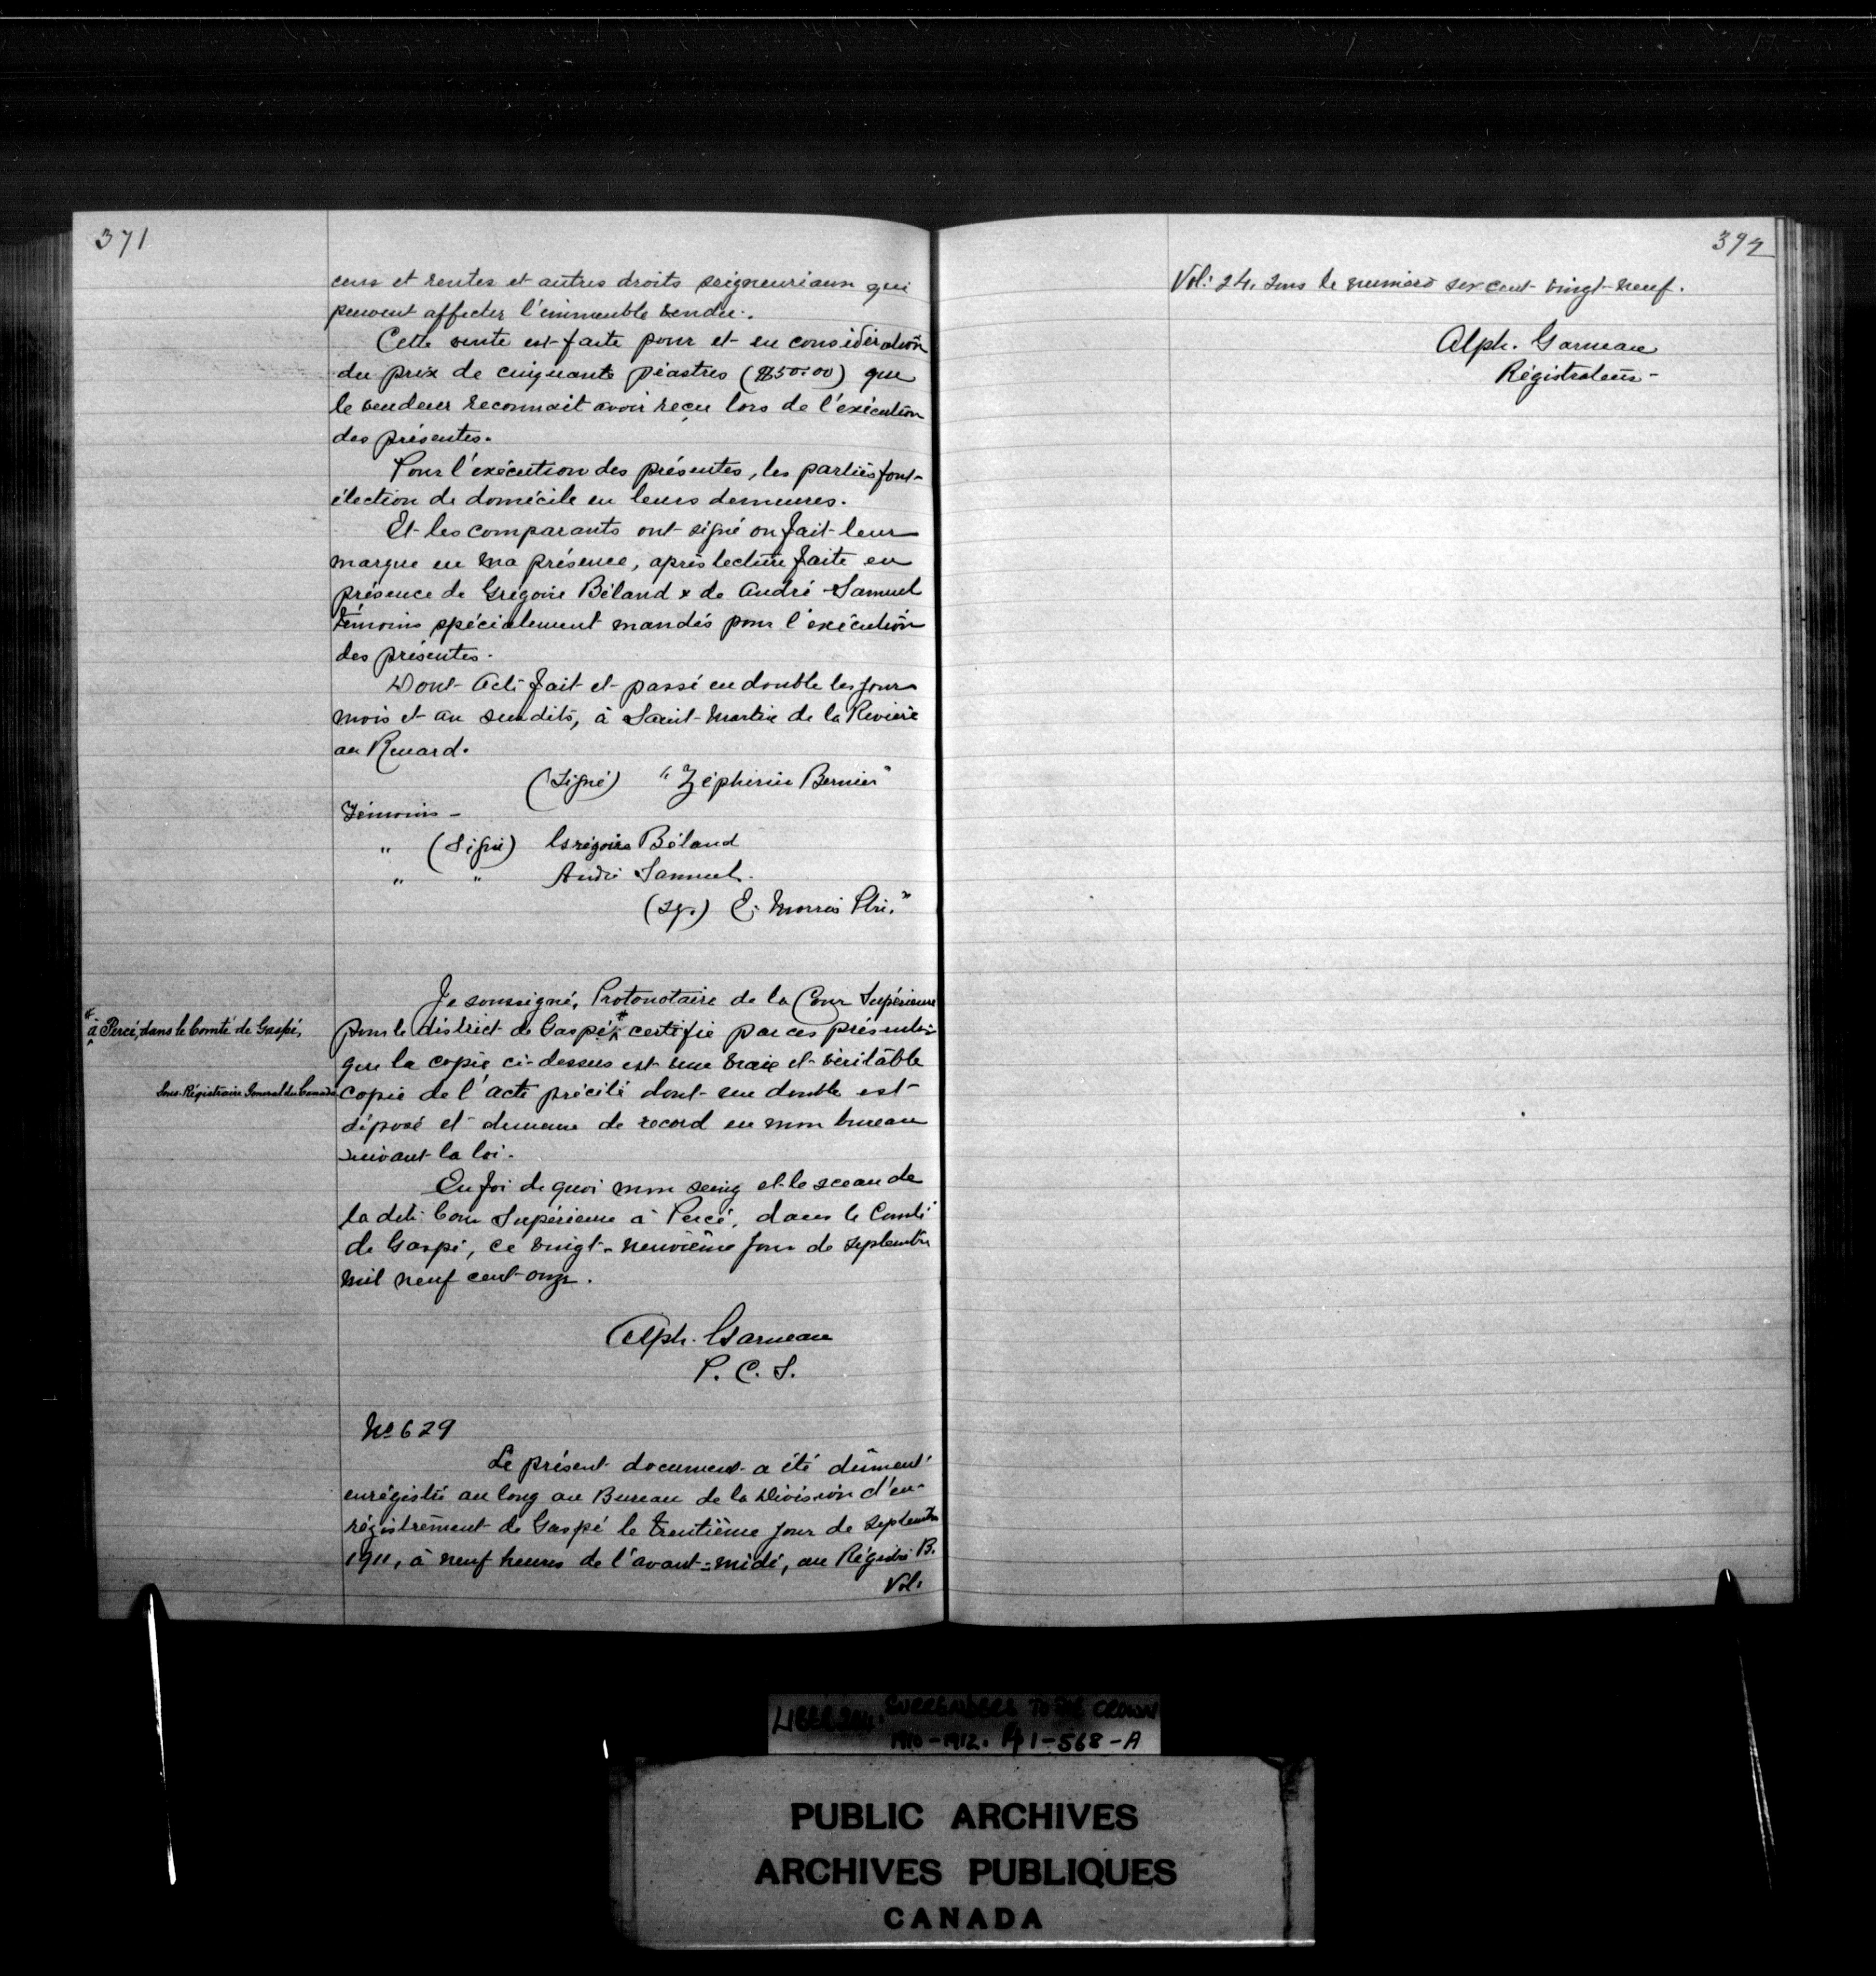 371
cens et rentes et autres droits seigneuriaux qui
peuvent affecter l'immeuble vendu.
Cette vente est faite pour et en considération
du prix de cinquante piastres ($50.00) que
le vendeur reconnait avoir reçu lors de l'exécution
des présentes.
Pour l'exécution des présentes, les parties font
élection de domicile en leurs demeures.
Et les comparants ont signé ou fait leur
marque en ma présence, après lecture faite en
présence de Grégoire Béland & de André Samuel
témoins spécialement mandés pour l'exécution
des présentes.
Dont Acte fait et passé en double les jour
mois et an susdits, à Saint-Martin de la Rivière
au Renard.
(Signé) "Zéphirin Bernier"
Témoins -
" (Signé) Grégoire Béland
" " André Samuel.
(Sg.) E. Morris Ptre."
Je soussigné, Protonotaire de la Cour Supérieure
pour le district de Gaspé * certifie par ces présentes
* à Percé, dans le Comté de Gaspé,
que la copie ci-dessus est une vraie et véritable
copie de l'acte précité dont un double est
Sous-Régistraire Général du Canada
déposé et demeure de record en mon bureau
suivant la loi.
En foi de quoi mon seing et le sceau de
la dite Cour Supérieure à Percé, dans le Comté
de Gaspé, ce vingt-neuvième jour de septembre
mil neuf cent onze.
Alph. Garneau
P. C. S.
No 629
Le présent document a été dûment
enrégistré au long au Bureau de la Division d'en-
régistrement de Gaspé le trentième jour de septembre
1911, à neuf heures de l'avant-midi, au Régistre B.
Vol:
392
Vol: 24, sous le numéro six cent vingt-neuf.
Alph. Garneau
Régistrateur -
LIBER SURRENDERS TO THE CROWN
1910-1912. 1-568-A
PUBLIC ARCHIVES
ARCHIVES PUBLIQUES
CANADA